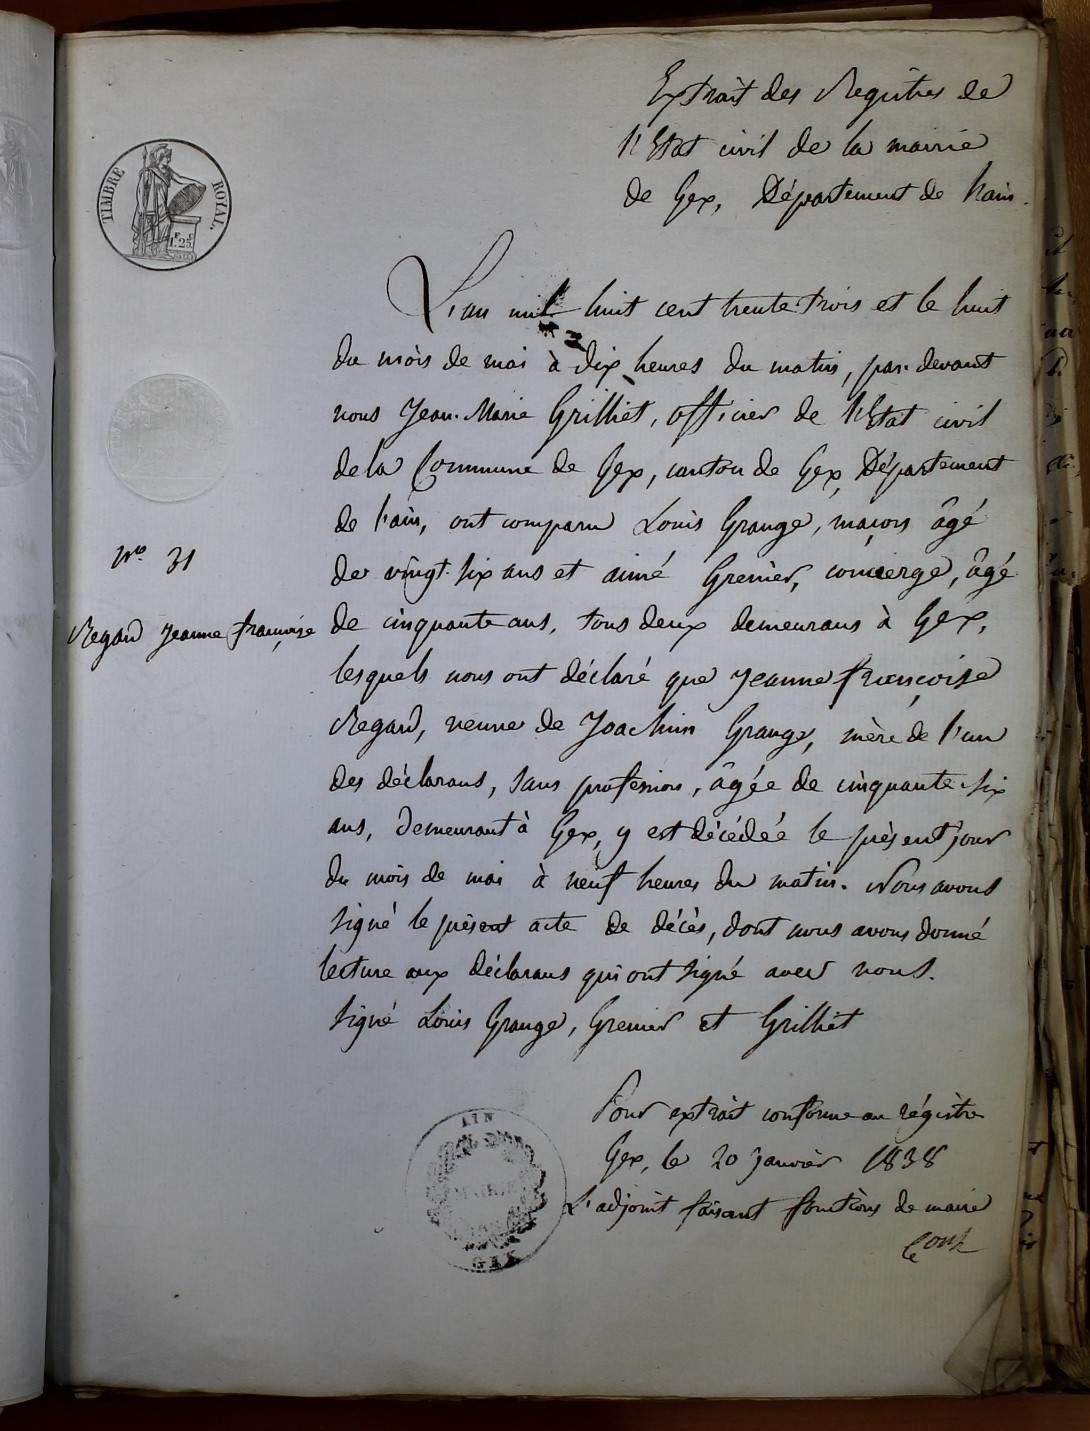 Extrait des Registres de
l'Etat civil de la mairie
de Gex, Département de l'ain.
TIMBRE ROYAL.
1f. 25c
L'an mil huit cent trente trois et le huit
du mois de mai à dix heures du matin, par-devant
nous Jean-Marie Grilliet, officier de l'Etat civil
de la Commune de Gex, canton de Gex, Département
de l'ain, ont comparu Louis Grange, maçon âgé
de vingt-six ans et aimé Grenier, concierge, âgé
N° 31
Regard Jeanne françoise
de cinquante ans, tous deux demeurans à Gex,
lesquels nous ont déclaré que Jeanne françoise
Regard, veuve de Joachim Grange, mère de l'un
des déclarans, sans profession, âgée de cinquante six
ans, demeurant à Gex, y est décédée le présent jour
du mois de mai à neuf heures du matin. Nous avons
signé le présent acte de décès, dont nous avons donné
lecture aux déclarans qui ont signé avec nous.
signé Louis Grange, Grenier et Grilliet
Pour extrait conforme au régistre
Gex, le 20 Janvier 1838
L'adjoint faisant fonctions de maire
AIN
MAIRIE
GEX